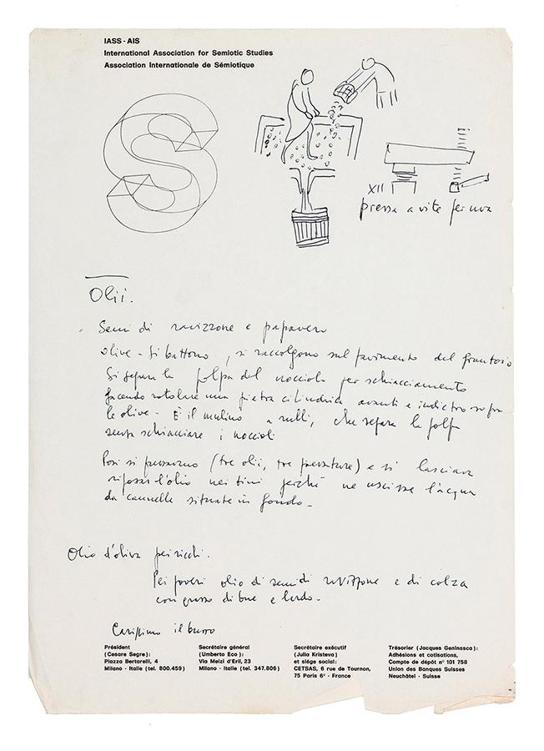 IASS - AIS
International Association for Semiotic Studies
Association Internationale de Sémiotique
S
XII
pressa a vite per uva
Olii.
Semi di ravizzone e papavero
olive - si battono, si raccolgono sul pavimento del frantoio
Si separa la polpa dal nocciolo per schiacciamento
facendo rotolare una pietra cilindrica avanti e indietro sopra
le olive - È il mulino a rulli, che separa la polpa
senza schiacciare i noccioli
Poi si pressavano (tre olii, tre pressature) e si lasciava
riposar l'olio nei tini perché ne uscisse l'acqua
da cannelle situate in fondo -
Olio d'oliva pei ricchi.
Pei poveri olio di semi di ravizzone e di colza
con grasso di bue e lardo.
Carissimo il burro
Président
(Cesare Segre):
Piazza Bertarelli, 4
Milano - Italie (tel. 800.459)
Secrétaire général
(Umberto Eco):
Via Melzi d'Eril, 23
Milano - Italie (tel. 347.806)
Secrétaire exécutif
(Julia Kristeva)
et siège social:
CETSAS, 6 rue de Tournon,
75 Paris 6e - France
Trésorier (Jacques Geninasca):
Adhésions et cotisations,
Compte de dépôt n° 101 758
Union des Banques Suisses
Neuchâtel - Suisse